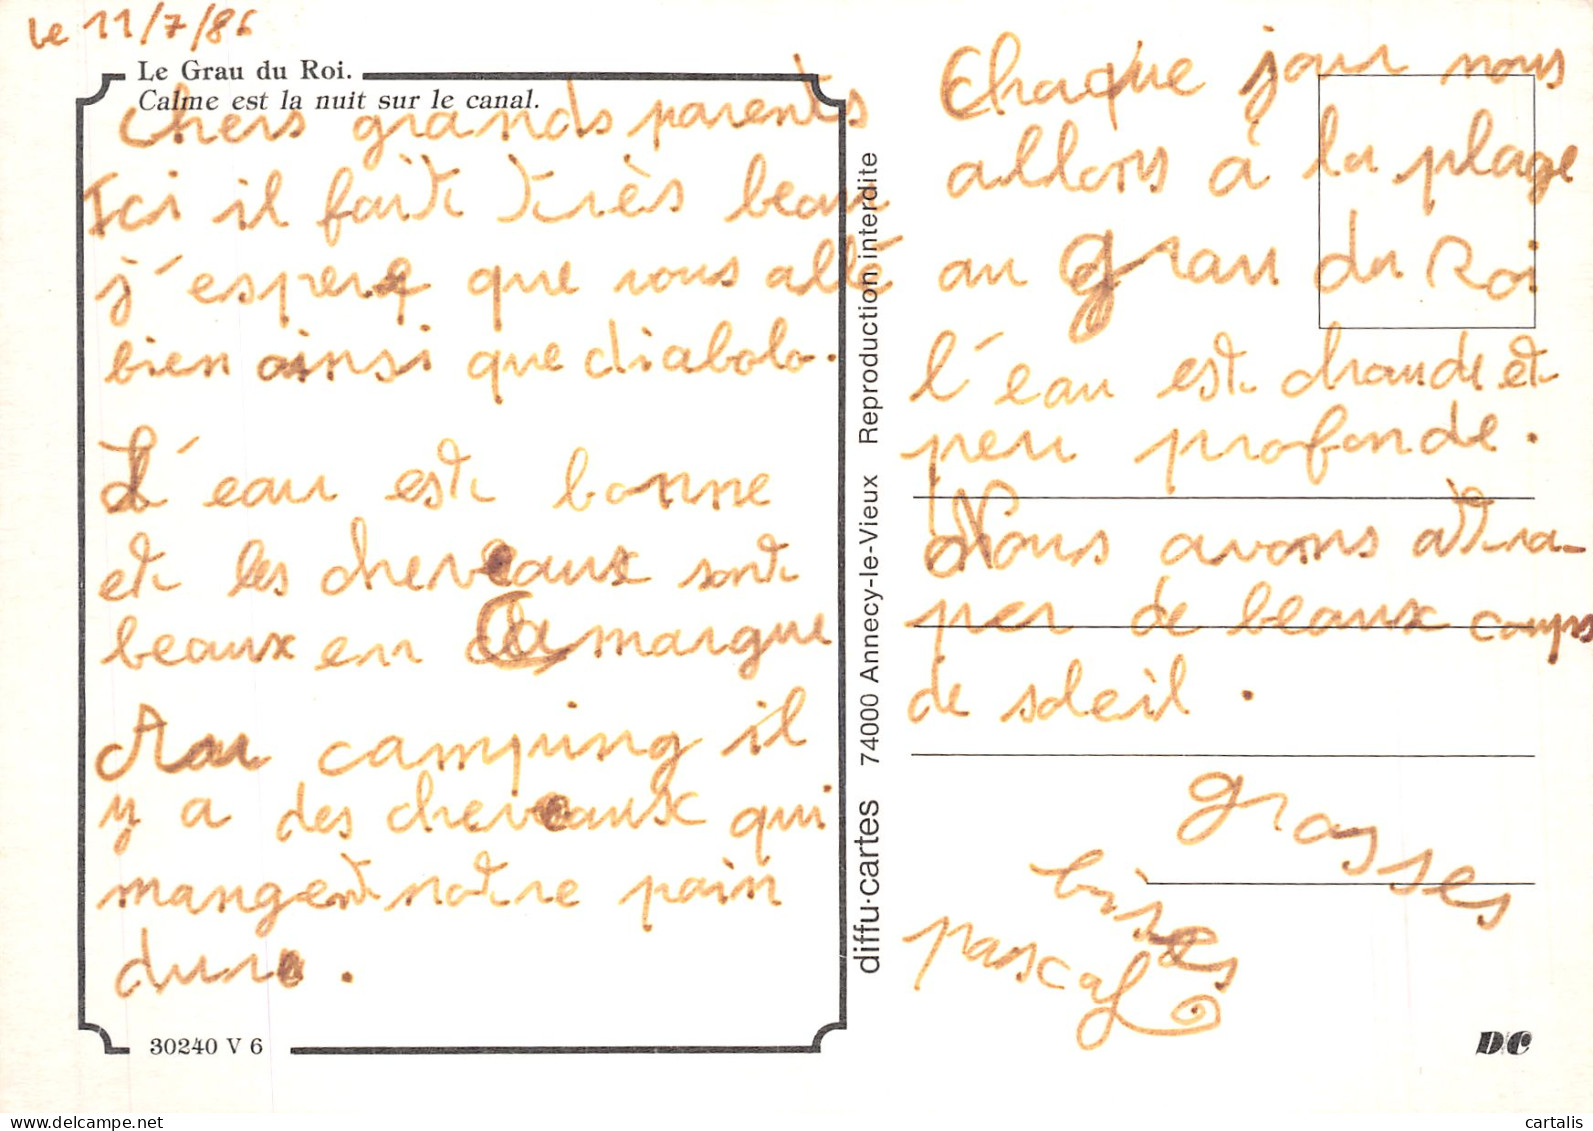 le 11/7/86
Le Grau du Roi.
Calme est la nuit sur le canal.
Chers grands parents
Ici il fait très beau
j'espere que vous allé
bien ainsi que diabolo.
L'eau est bonne
et les cheveaux sont
beaux en Camargue
Au camping il
y a des cheveaux qui
mangent notre pain
dure.
30240 V 6
diffu·cartes 74000 Annecy-le-Vieux Reproduction interdite
Chaque jour nous
allons à la plage
au grau du Roi
l'eau est chaude et
peu profonde.
Nous avons attra-
per de beaux coups
de soleil.
grosses
bises
pascal
D/C
cartalis